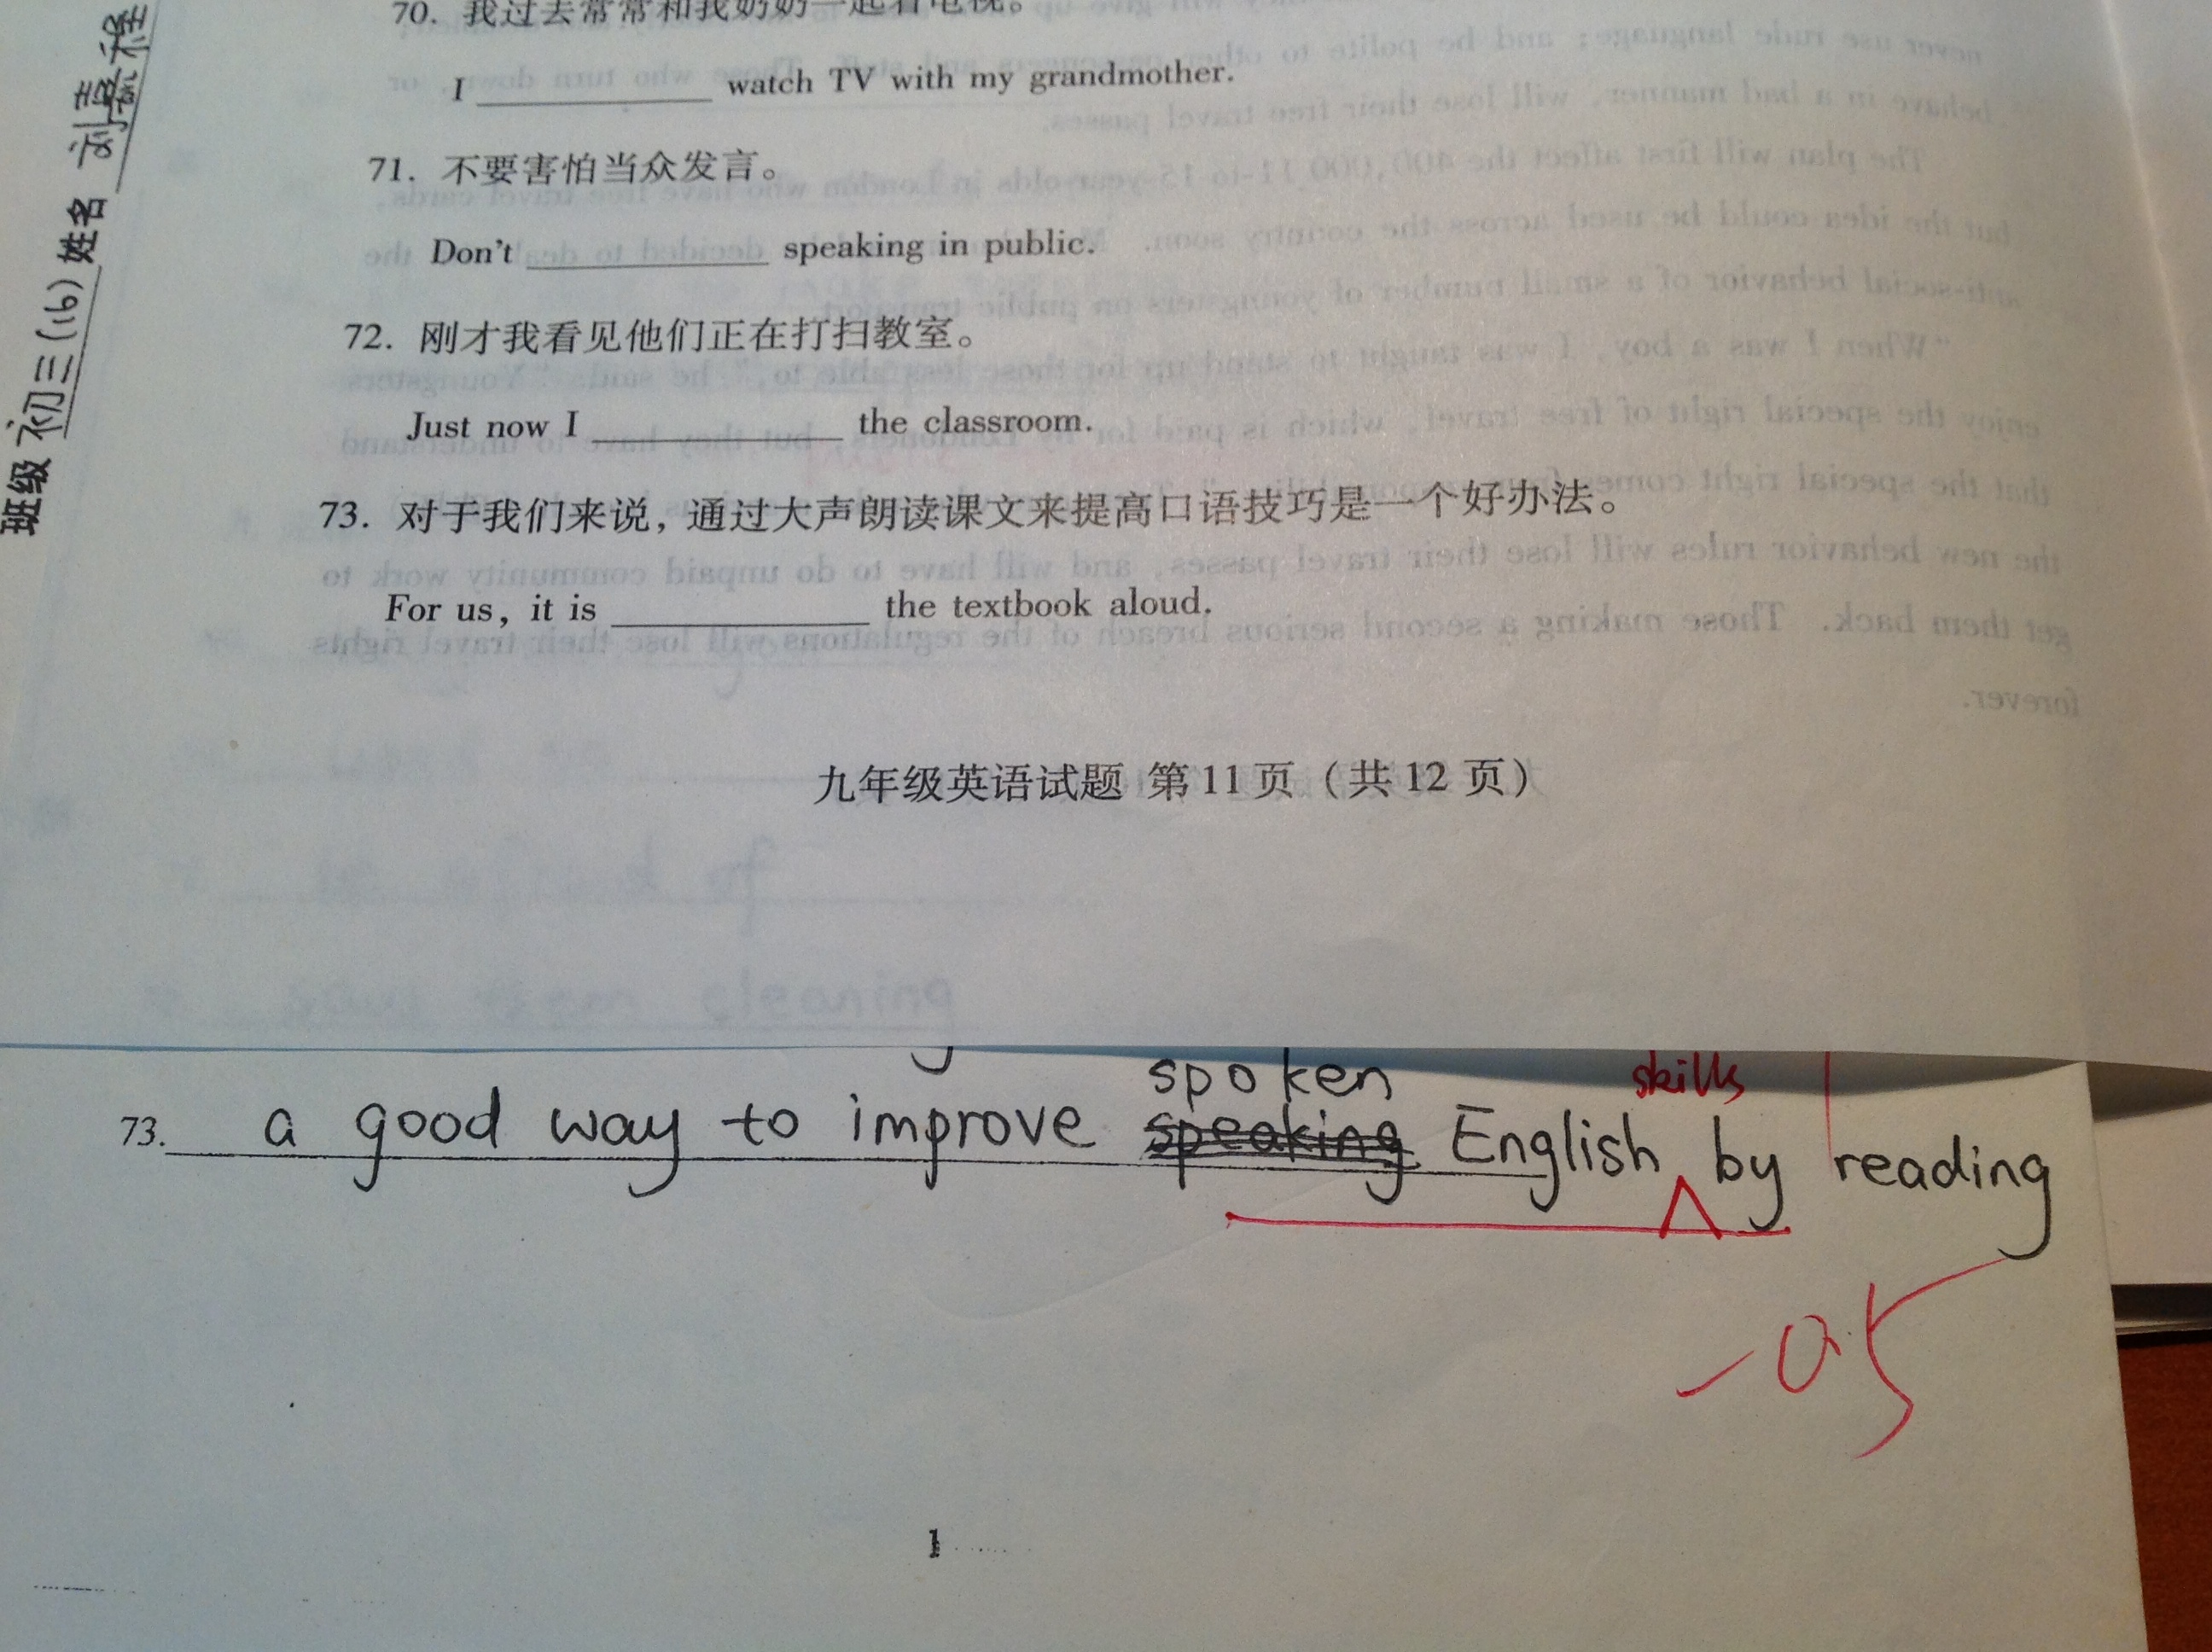 班级 初三(16) 姓名
70. 我过去常常和我奶奶一起看电视。
I ____________ watch TV with my grandmother.
71. 不要害怕当众发言。
Don't ____________ speaking in public.
72. 刚才我看见他们正在打扫教室。
Just now I ____________ the classroom.
73. 对于我们来说，通过大声朗读课文来提高口语技巧是一个好办法。
For us, it is ____________ the textbook aloud.
九年级英语试题 第11页（共12页）
spoken skills
73. a good way to improve speaking English by reading
-0.5
1